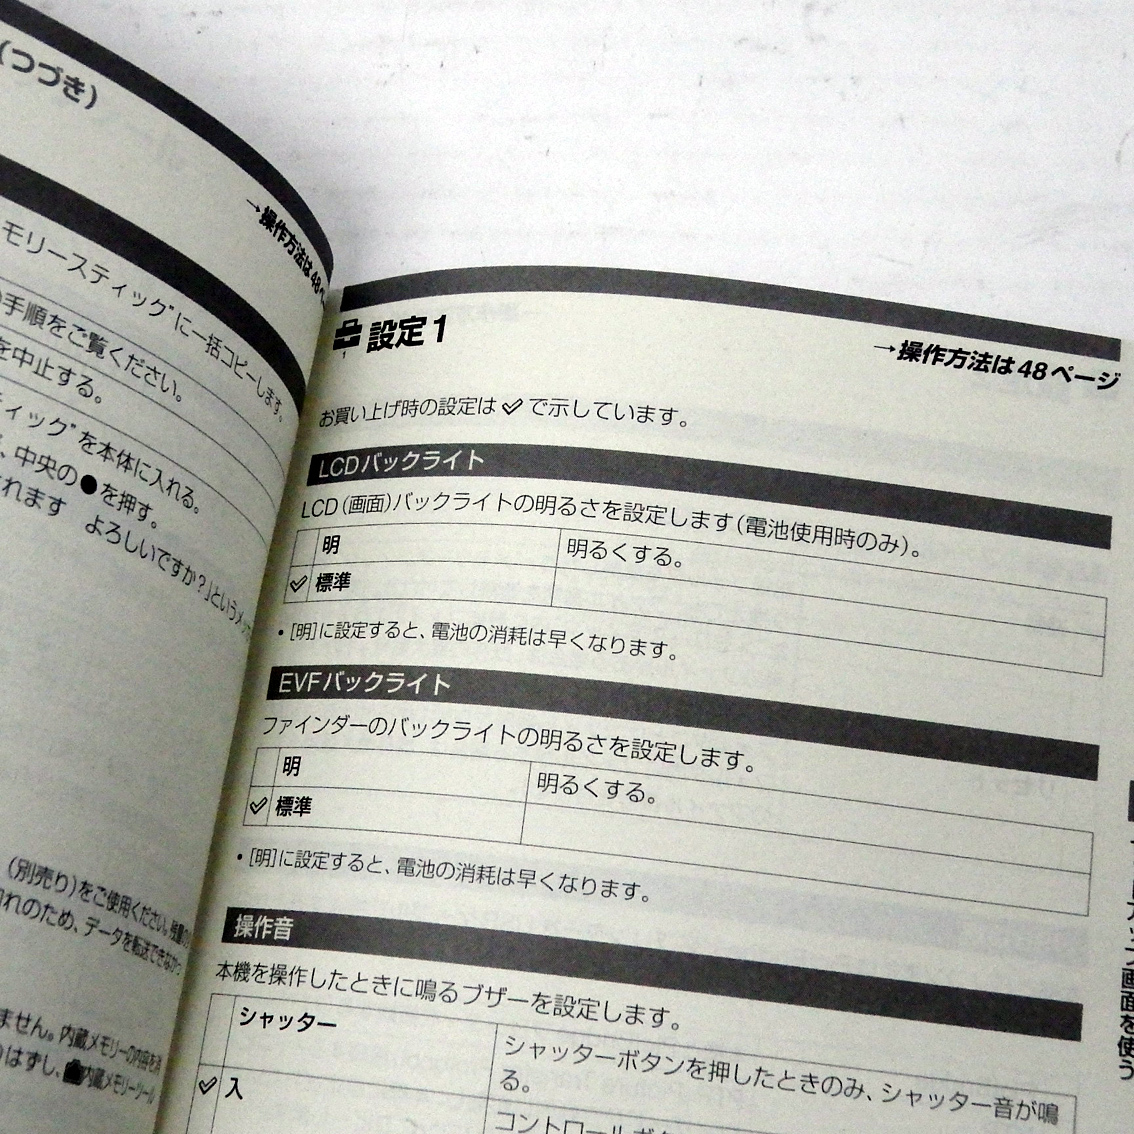 (つづき)
→操作方法は48ペ
モリースティック"に一括コピーします。
手順をご覧ください。
を中止する。
ティック"を本体に入れる。
、中央の●を押す。
されます よろしいですか?」というメッ
(別売り)をご使用ください。残量の
切れのため、データを転送できなかっ
ません。内蔵メモリーの内容を消
はずし、内蔵メモリーツール
設定1
1
→操作方法は48ページ
お買い上げ時の設定は✓で示しています。
LCDバックライト
LCD(画面)バックライトの明るさを設定します(電池使用時のみ)。
明 明るくする。
✓ 標準
• [明]に設定すると、電池の消耗は早くなります。
EVFバックライト
ファインダーのバックライトの明るさを設定します。
明 明るくする。
✓ 標準
• [明]に設定すると、電池の消耗は早くなります。
操作音
本機を操作したときに鳴るブザーを設定します。
シャッター シャッターボタンを押したときのみ、シャッター音が鳴
る。
✓ 入 コントロールボタ
画面を使う